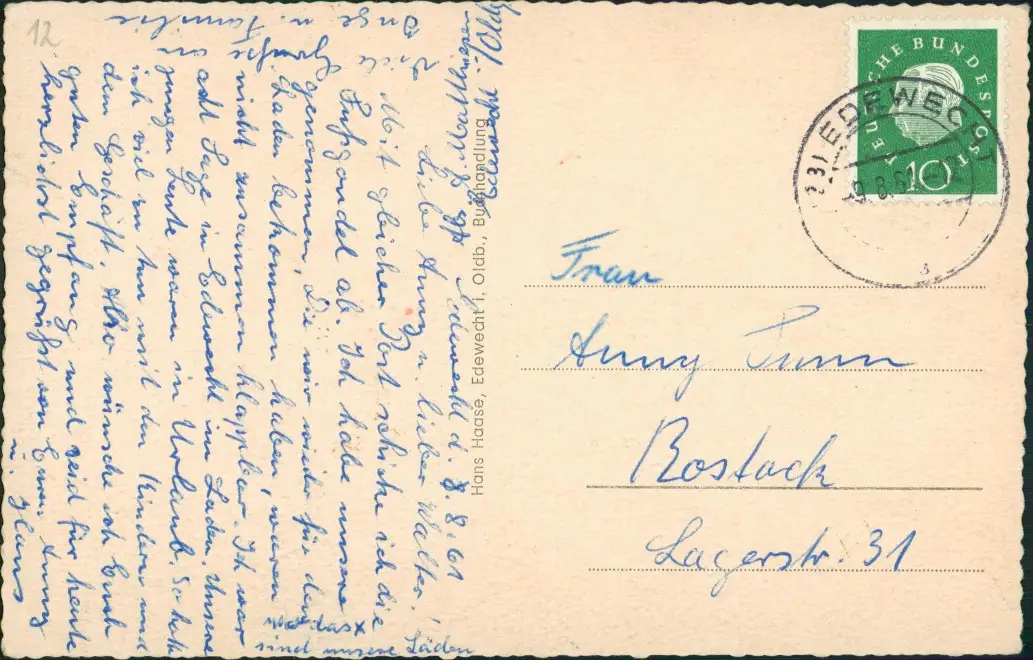 12
Edewecht d. 8.8.61
Liebe Anny u. lieber Walter!
Mit gleicher Post schicke ich die
Fußgondel ab. Ich habe unsre
genommen, die wir wieder für den
Laden bekommen haben, waren
nicht zusammen klappbar. Ich war
acht Tage in Edewecht im Laden. Unsere
jungen Leute waren in Urlaub. So hatte
ich viel zu tun mit den Kindern und
dem Geschäft. Also wünsche ich Euch
guten Empfang und seid für heute
herzlichst gegrüßt von Eurer Anny
u. Hans
das
sind unsere Läden
Familie
Hans Haase, Edewecht i. Oldb., Buchhandlung
DEUTSCHE BUNDESPOST
10
(23) EDEWECHT
-9.8.61
Frau
Anny Timm
Rostock
Lagerstr. 31